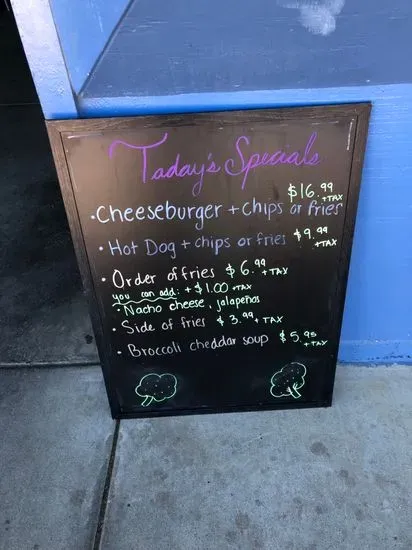 Today's Specials
$16.99 +TAX
• Cheeseburger + chips or fries
• Hot Dog + chips or fries $9.99 +TAX
• Order of fries $6.99 +TAX
you can add: +$1.00 +TAX
• Nacho cheese, jalapeños
• Side of fries $3.99 + TAX
• Broccoli cheddar soup $5.95 +TAX